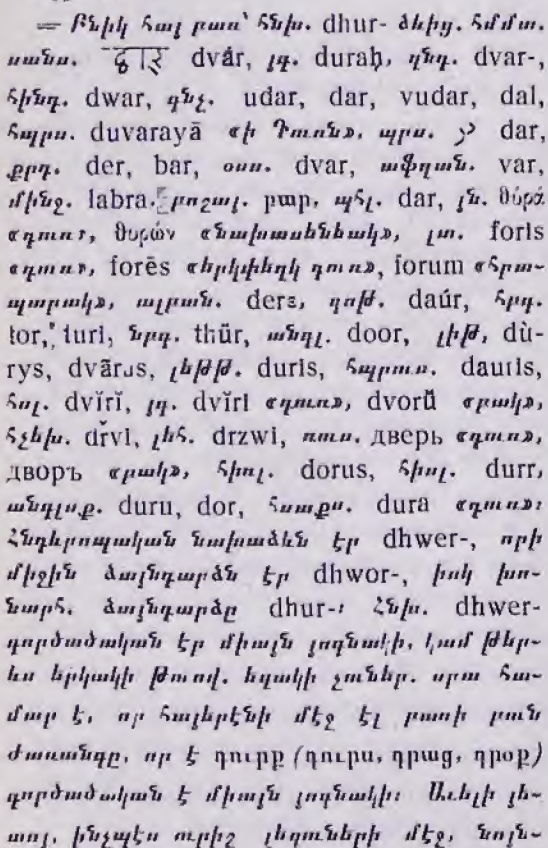 = Բնիկ հայ բառ՝ հնխ. dhur- ձևից. հմմտ.
սանս. द्वार् dvâr, յգ. duraḥ, զնդ. dvar-,
հինդ. dwar, գնչ. udar, dar, vudar, dal,
հպրս. duvarayā «ի Դուռն», պրս. در dar,
քրդ. der, bar, օսս. dvar, աֆղան. var,
մինջ. labra. բոշայ. բար, պհլ. dar, յն. θύρα
«դուռ», θυρών «նախասենեակ», լտ. foris
«դուռ», forēs «երկփեղկ դուռ», forum «հրա-
պարակ», ալբան. derɛ, գոթ. daúr, հբգ.
tor, turi, նրգ. thür, անգլ. door, լիթ. dù-
rys, dvāras, լեթթ. duris, հպրուս. dauris,
հսլ. dvĭrĭ, յգ. dvĭri «դուռ», dvorŭ «բակ»,
հչեխ. dřvi, լեհ. drzwi, ռուս. дверь «դուռ»,
дворъ «բակ», հիռլ. dorus, հիսլ. durr,
անգլսք. duru, dor, հսաքս. dura «դուռ»։
Հնդևրոպական նախաձևն էր dhwer-, որի
միջին ձայնդարձն էր dhwor-, իսկ խո-
նարհ. ձայնդարձը dhur-։ Հնխ. dhwer-
գործածական էր միայն յոգնակի, կամ թեր-
ևս երկակի թուով. եզակի չունէր. սրա հա-
մար է, որ հայերէնի մէջ էլ բառի բուն
ժառանգը, որ է դուրք (դուրս, դրաց, դրօք)
գործածական է միայն յոգնակի։ Աւելի յե-
տոյ, ինչպէս ուրիշ լեզուների մէջ, նոյն-